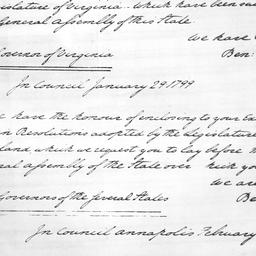 islature of Virginia. which have been
General assembly of this State
We have
Governor of Virginia
Ben:
In Council January 29. 1799
have the honour of enclosing to your
Resolutions adopted by the Legislature
land, which we request you to lay before
ral assembly of the State over which you
We are
Governors of the several States
Be
In Council Annapolis February